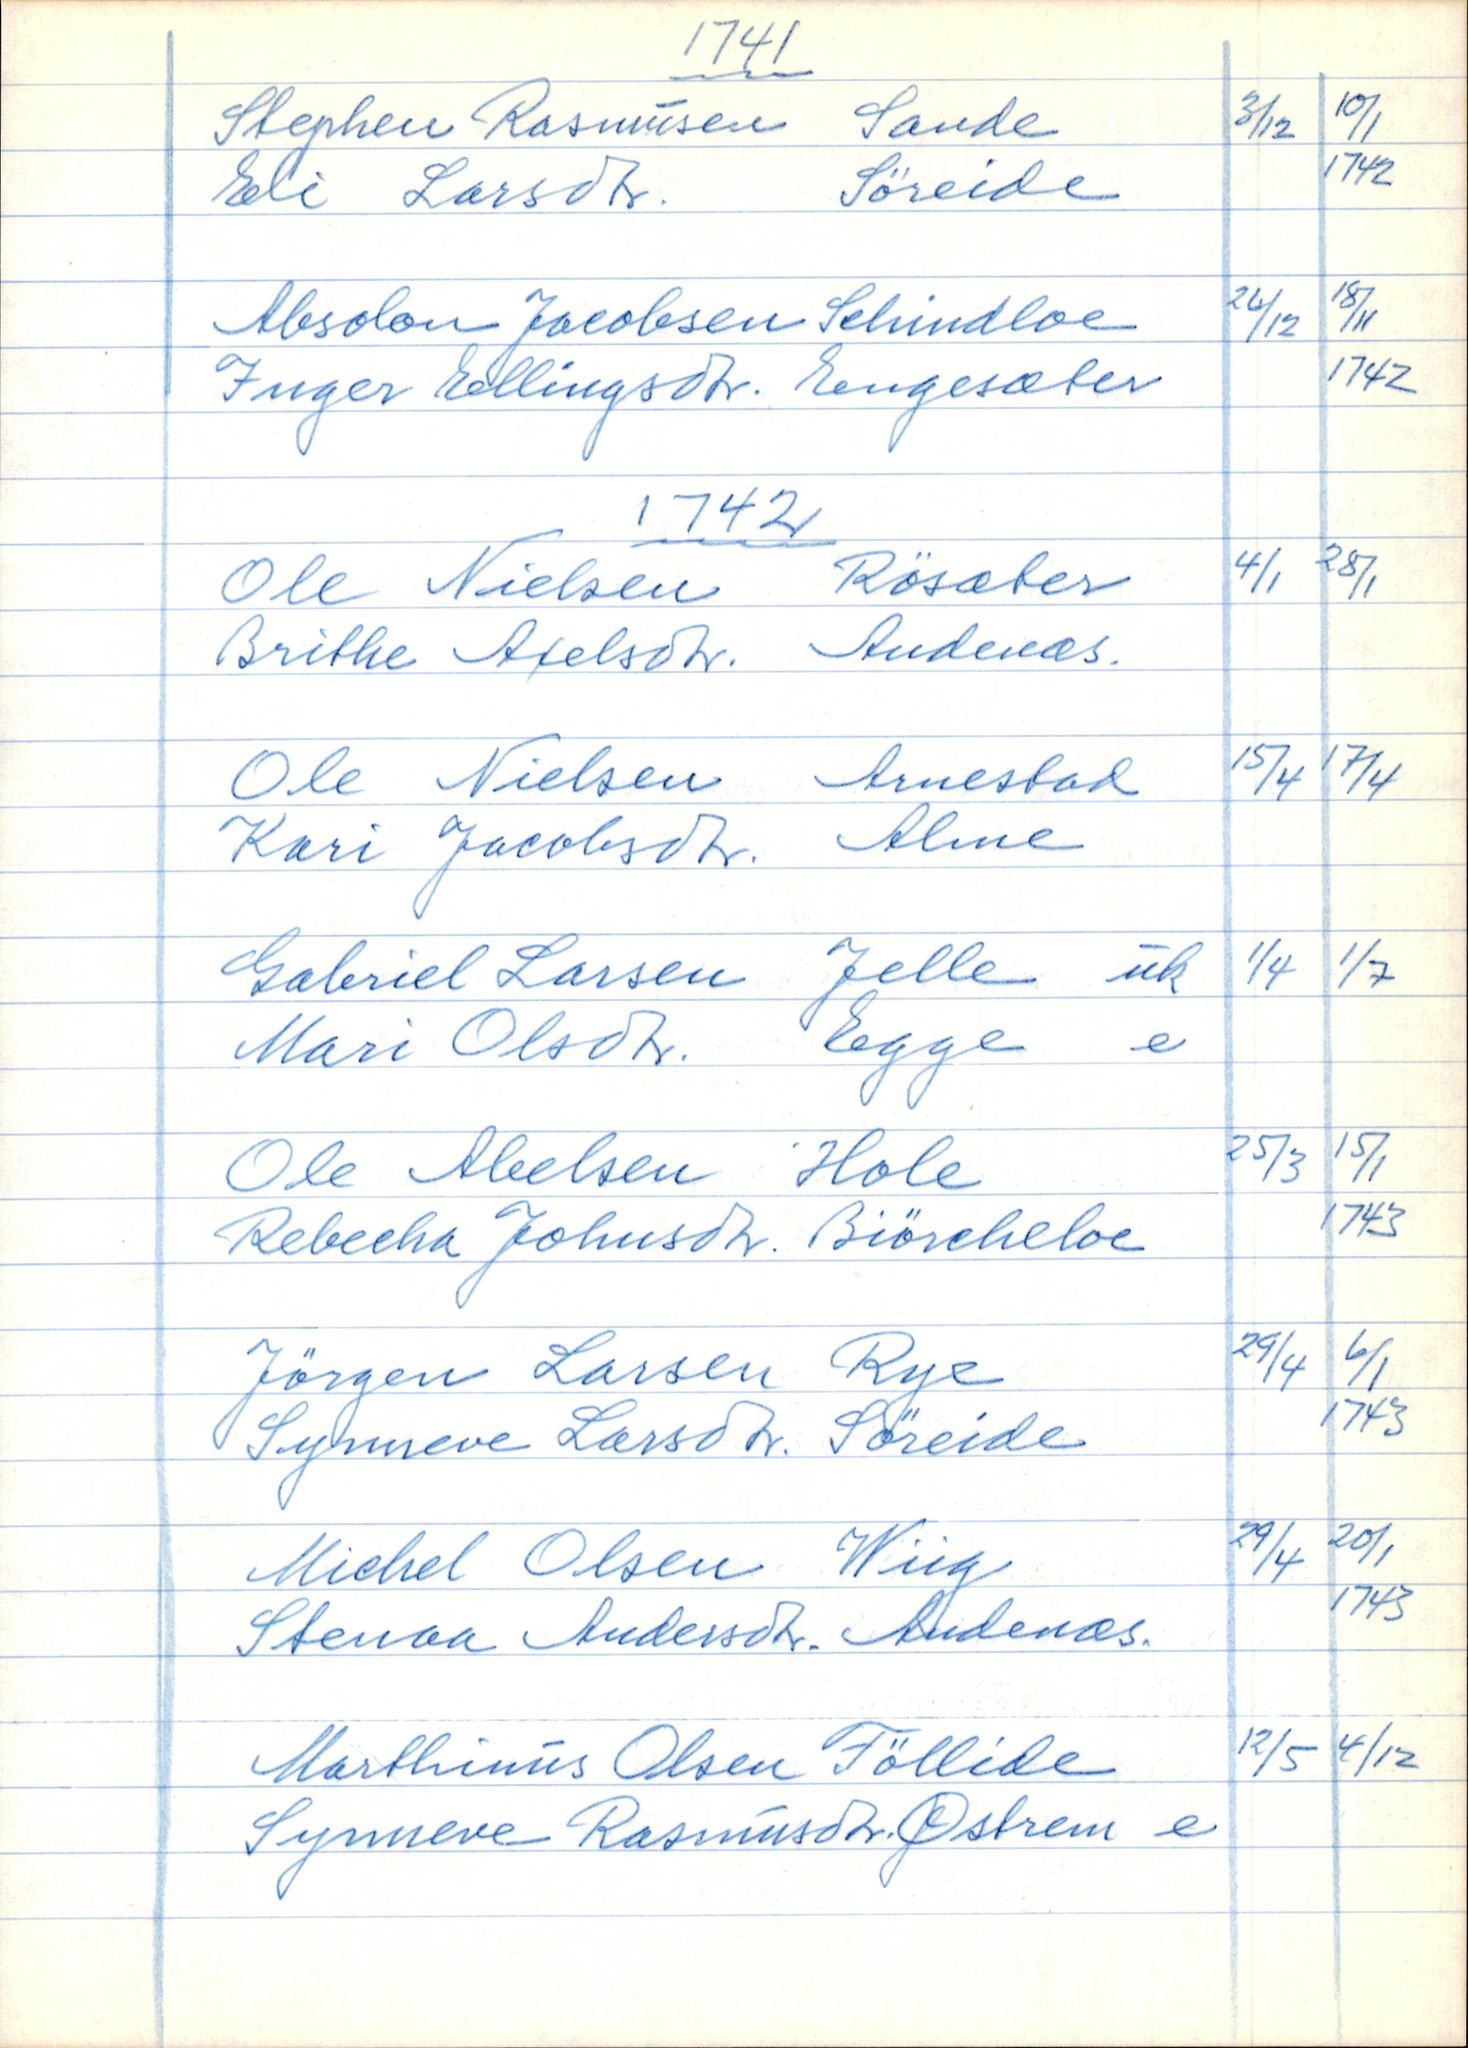 1741
Stephen Rasmüsen Sande 3/12 10/1
Eli Larsdtr. Söreide 1742
Absolon Jacobsen Schindloe 26/12 18/11
Inger Ellingsdtr. Engesæter 1742
1742
Ole Nielsen Rösæter 4/1 28/1
Brithe Axelsdtr. Andenæs.
Ole Nielsen Arnestad 15/4 17/4
Kari Jacobsdtr. Alme
Gabriel Larsen Jelle ük 1/4 1/7
Mari Olsdtr. Egge e
Ole Abelsen Hole 25/3 15/1
Rebecha Johnsdtr. Biörcheloe 1743
Jörgen Larsen Rye 29/4 6/1
Synneve Larsdtr. Söreide 1743
Michel Olsen Wiig 29/4 20/1
Stenaa Andersdtr. Andenæs. 1743
Marthinüs Olsen Föllide 12/5 4/12
Synneve Rasmüsdtr. Østrem e